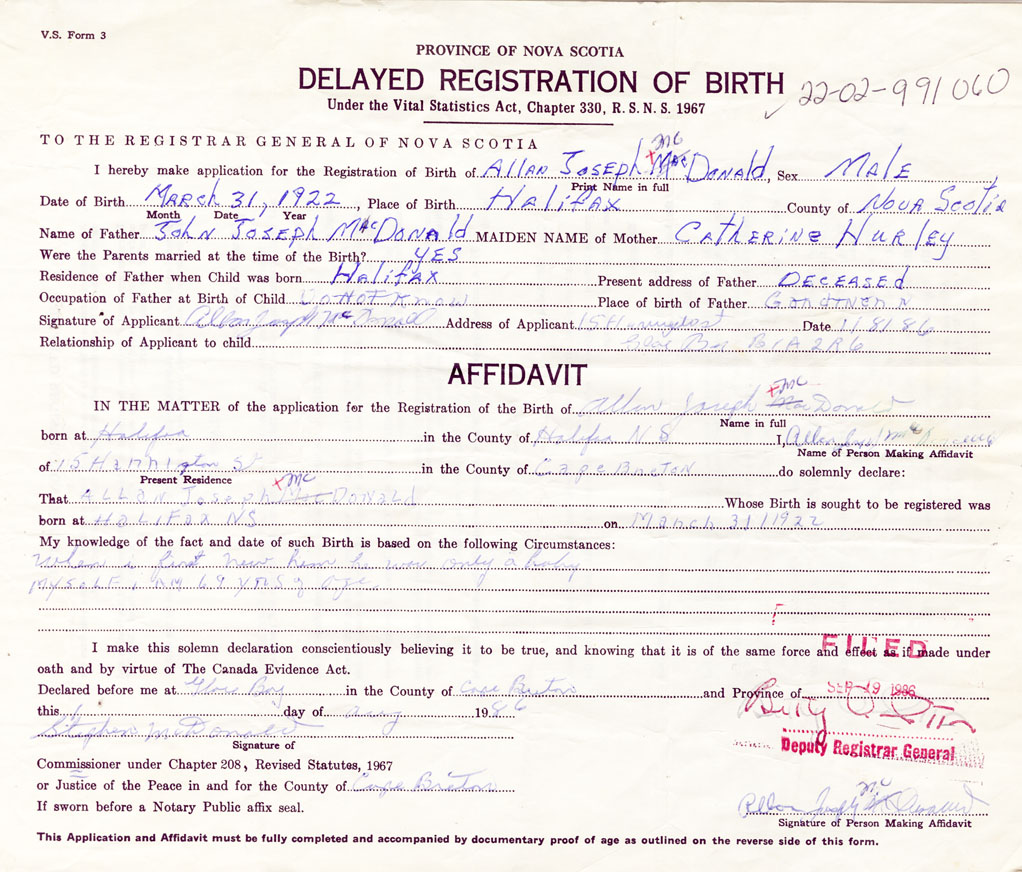 V.S. Form 3
PROVINCE OF NOVA SCOTIA
DELAYED REGISTRATION OF BIRTH
22-02-991060
Under the Vital Statistics Act, Chapter 330, R.S.N.S. 1967
TO THE REGISTRAR GENERAL OF NOVA SCOTIA
Mc
I hereby make application for the Registration of Birth of Allan Joseph x MacDonald, Sex Male
Print Name in full
Date of Birth March 31, 1922, Place of Birth Halifax County of Nova Scotia
Month Date Year
Name of Father John Joseph MacDonald MAIDEN NAME of Mother Catherine Hurley
Were the Parents married at the time of the Birth? YES
Residence of Father when Child was born Halifax Present address of Father Deceased
Occupation of Father at Birth of Child Do not know Place of birth of Father
Signature of Applicant Allan Joseph McDonald Address of Applicant 15 Date 1/8/86
Relationship of Applicant to child Glace Bay B1A 2R6
AFFIDAVIT
x Mc
IN THE MATTER of the application for the Registration of the Birth of Allan Joseph MacDonald
Name in full
born at Halifax in the County of Halifax N S I, Allan Joseph Mc
Name of Person Making Affidavit
of 15 St in the County of Cape Breton do solemnly declare:
Present Residence
x Mc
That Allan Joseph MacDonald Whose Birth is sought to be registered was
born at Halifax NS on March 31/1922
My knowledge of the fact and date of such Birth is based on the following Circumstances:
When i first new him he was only a baby
myself i am 69 yrs of age.
I make this solemn declaration conscientiously believing it to be true, and knowing that it is of the same force and effect as if made under
FILED
oath and by virtue of The Canada Evidence Act.
Declared before me at Glace Bay in the County of Cape Breton and Province of
SEP 19 1986
this 1 day of Aug 1986
Stephen McDonald
Signature of
Deputy Registrar General
Commissioner under Chapter 208, Revised Statutes, 1967
or Justice of the Peace in and for the County of Cape Breton
Mc
If sworn before a Notary Public affix seal.
Allan Joseph Donald
Signature of Person Making Affidavit
This Application and Affidavit must be fully completed and accompanied by documentary proof of age as outlined on the reverse side of this form.